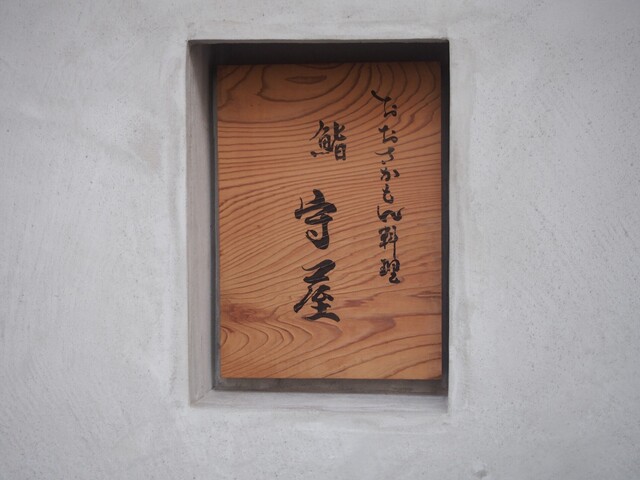 おおさかもん料理
鮨 守屋